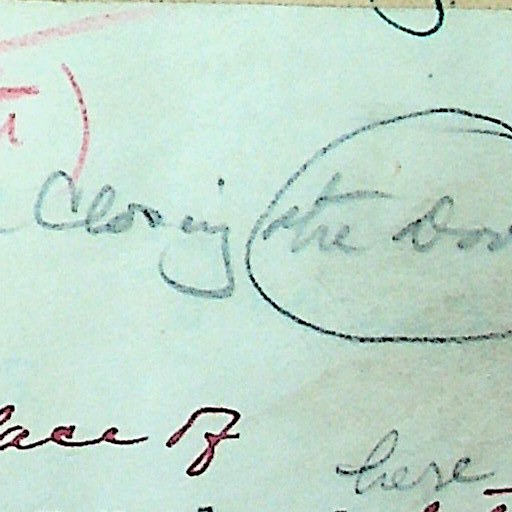 Closing the Doo
lace of
here